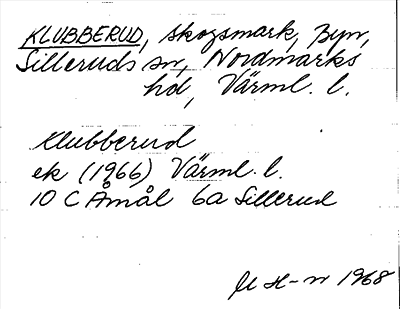 KLUBBERUD, skogsmark, Byn,
Silleruds sn, Nordmarks
hd, Värml. l.
Klubberud
ek (1966) Värml. l.
10 C Åmål 6a Sillerud
M H-n 1968